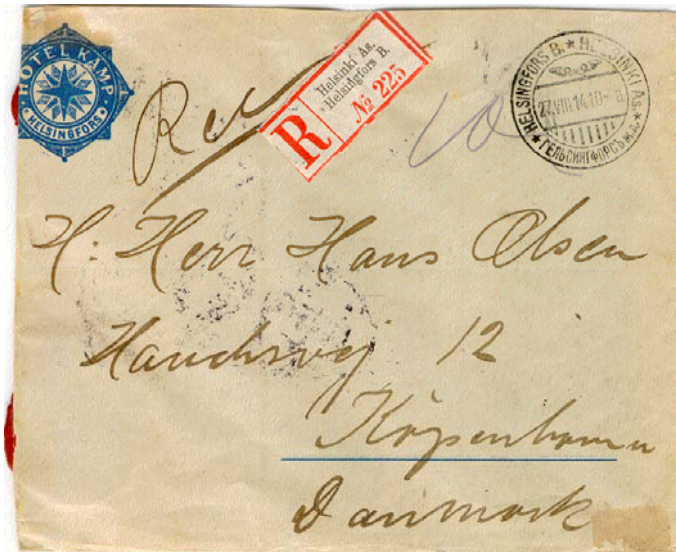 HOTEL KÄMP
HELSINGFORS
Rec
R
Helsinki As.
Helsingfors B.
№ 225
HELSINGFORS B. ★ HELSINKI AS. ★
27.VIII.14.10- a
★ ГЕЛЬСИНГФОРСЪ Ж.Д. ★
H: Herr Hans Olsen
12
Köpenhamn
Danmark